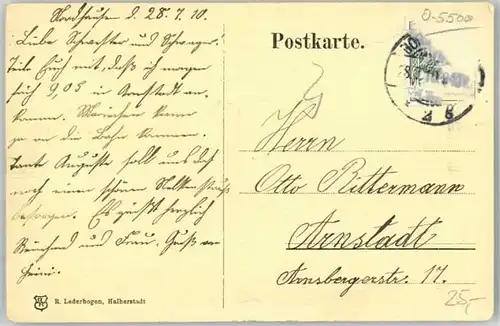 Nordhausen d. 28.7.10.
Liebe Schwester und Schwager.
Teile Euch mit, daß ich morgen
früh 9,05 in Arnstadt an-
komme.
an die Bahn kommen.
Tante Auguste soll uns doch
noch einen schönen Nelkenstrauß
besorgen. Es grüßt herzlich
und Frau. Gruß an
Postkarte.
O-5500
Herrn
Otto Rittermann
Arnstadt
Arnsbergerstr. 17.
25,-
R. Lederbogen, Halberstadt